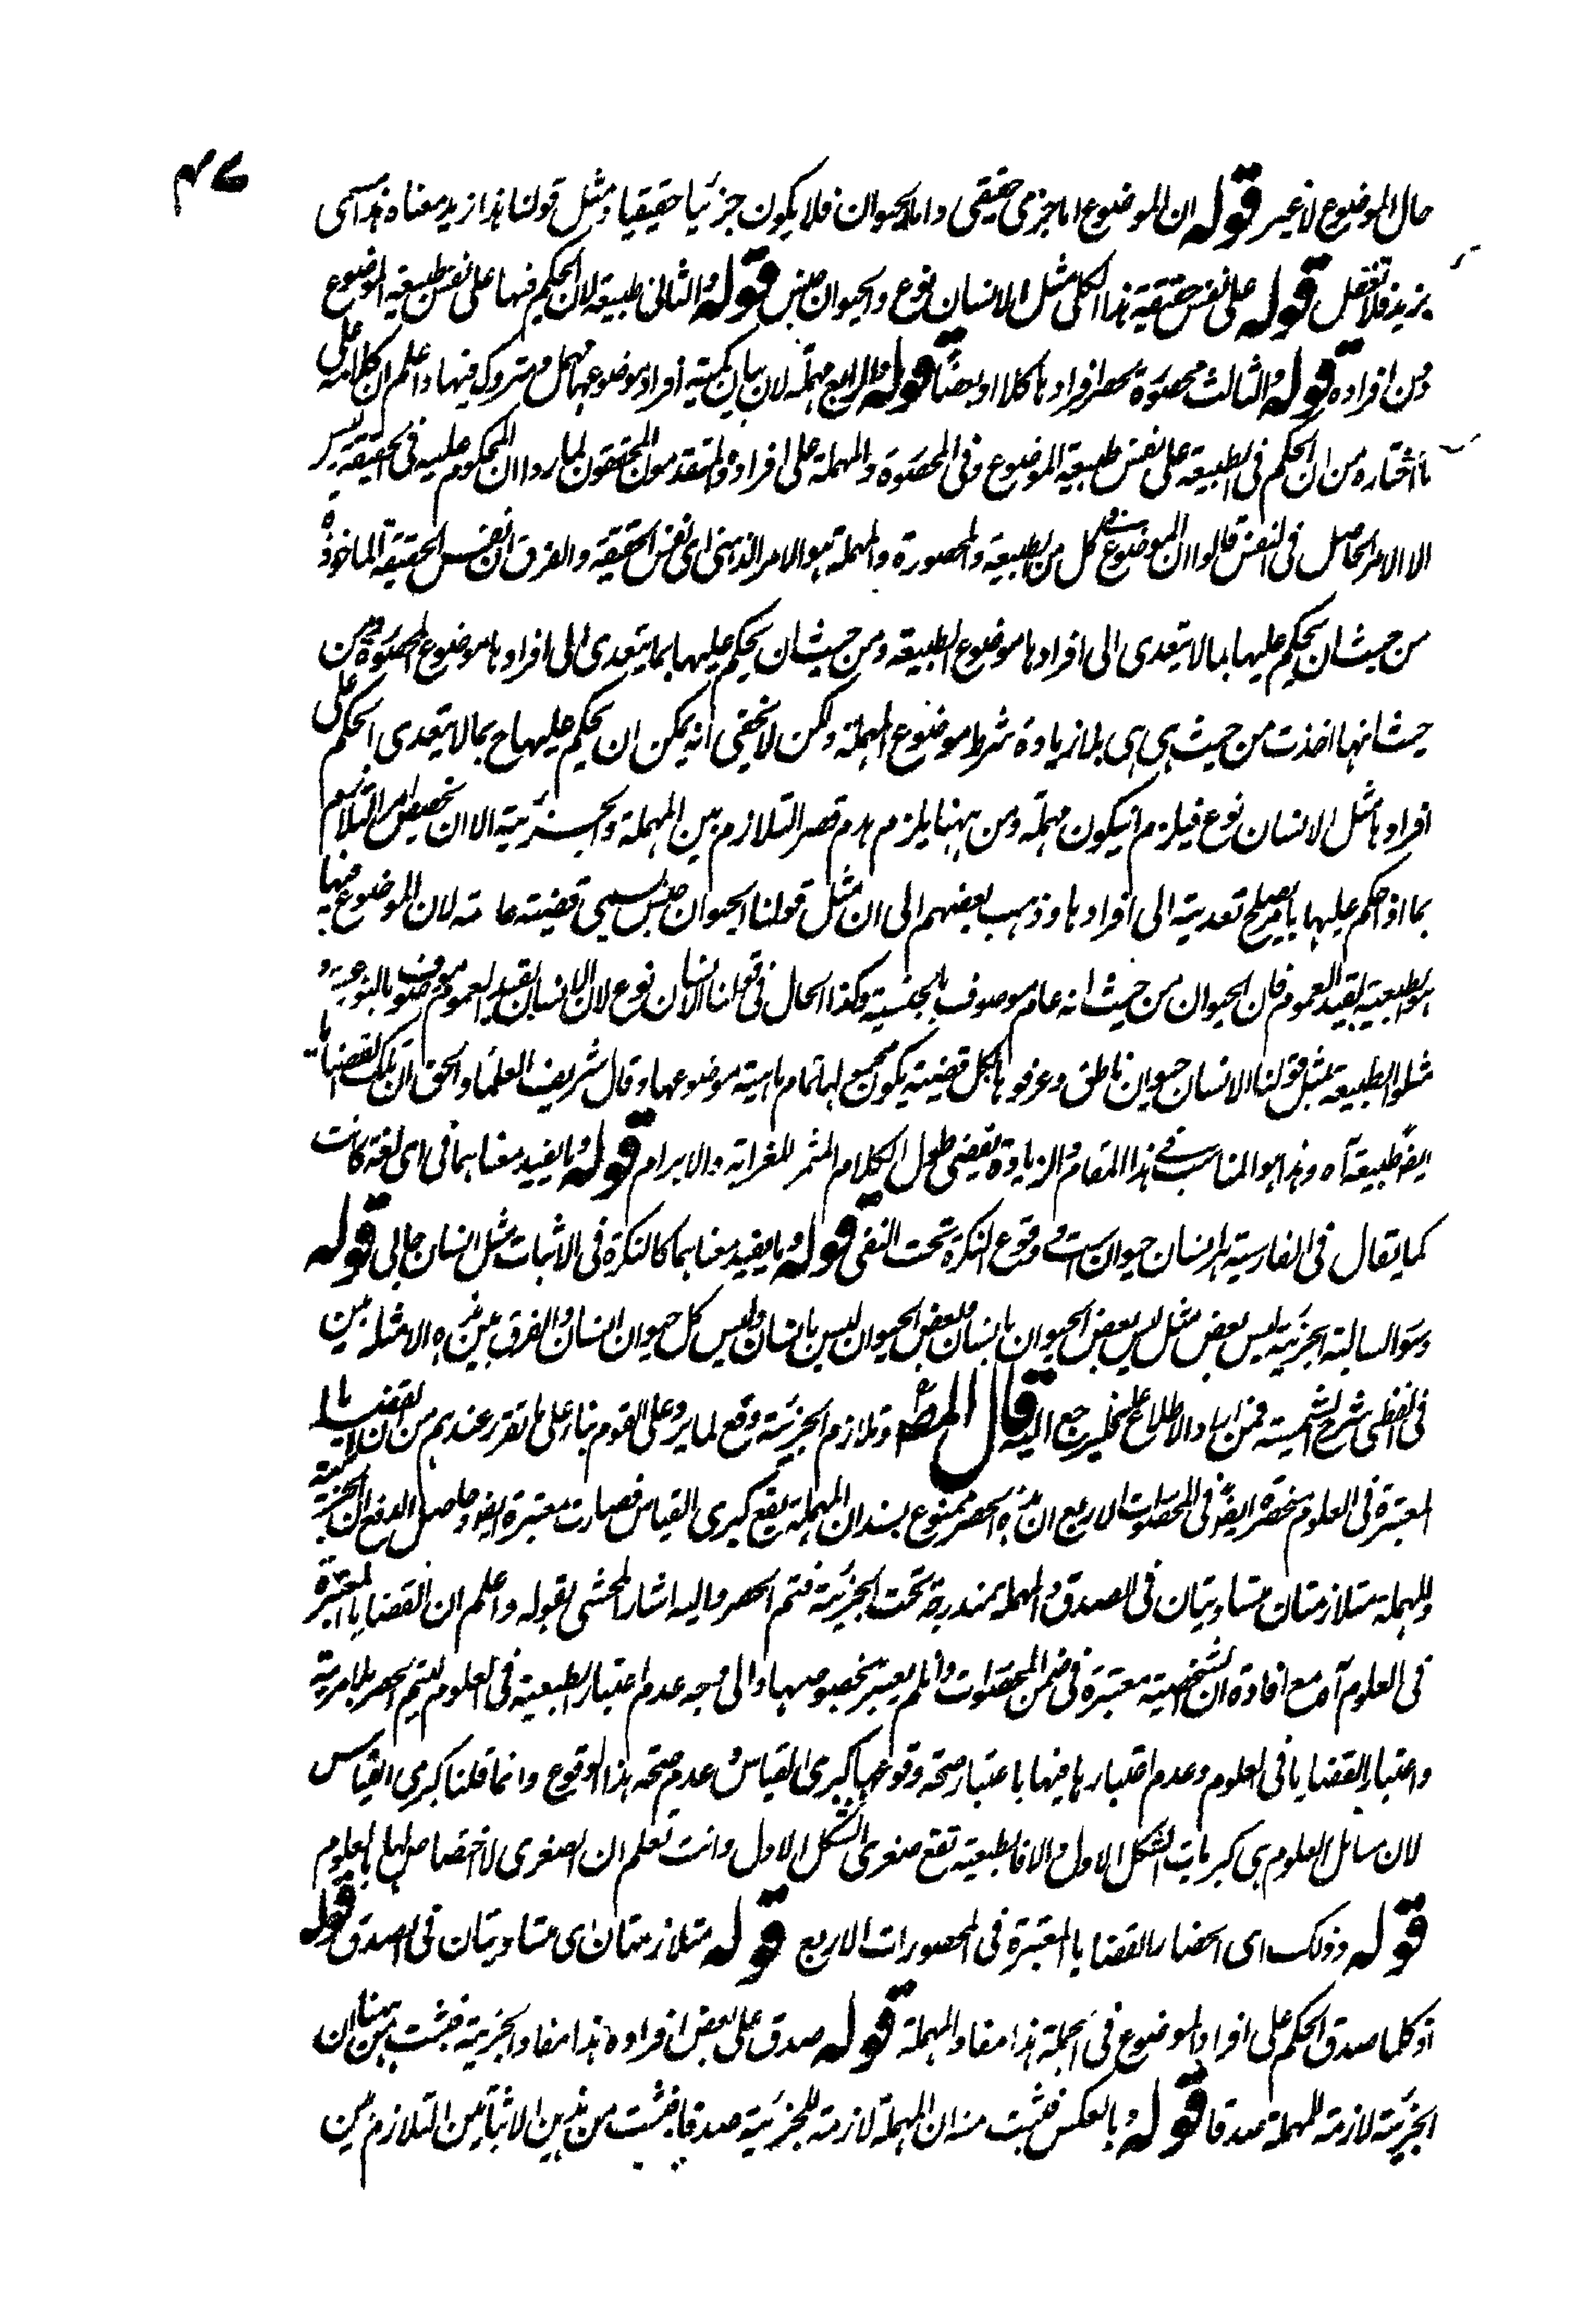 ٤٧
حال الموضوع لا غير قوله ان الموضوع اما جزئى حقيقى واما كالحيوان فلا يكون جزئيا حقيقيا ومثل قولنا هذا زيد معناه هذا مسمى
بزيد فلا تغفل قوله على نفس حقيقة هذا الكلى مثل الانسان نوع والحيوان جنس قوله والثانى طبيعية لان الحكم فيها على نفس طبيعة الموضوع
دون افراده قوله والثالث محصورة بحصر افرادها كلا او بعضا قوله والرابع مهملة لان بيان كمية افراد موضوعها مهمل ومتروك فيها واعلم ان كلامه على
ما اختاره من ان الحكم فى الطبيعية على نفس طبيعة الموضوع وفى المحصورة والمهملة على افراده والمتقدمون المحققون لما رروا ان المحكوم عليه فى الحقيقة ليس
الا الامر الحاصل فى النفس قالوا ان الموضوع فى كل من الطبيعية والمحصورة والمهملة هو الامر الذهنى اى نفس الحقيقة والفرق ان نفس الحقيقة الماخوذة
من حيث ان يحكم عليها بما لا يتعدى الى افرادها موضوع الطبيعية ومن حيث ان يحكم عليها بما يتعدى الى افرادها موضوع المحصورة ومن
حيث انها اخذت من حيث هى هى بلا زيادة شرط موضوع المهملة ولكن لا يخفى انه يمكن ان يحكم عليها ح بما لا يتعدى الحكم على
افرادها مثل الانسان نوع فيلزم ان يكون مهملة ومن ههنا يلزم هدم قصر التلازم بين المهملة والجزئية الا ان يخصص امر التلازم
بما اذا حكم عليها بما يصلح تعديته الى افرادها وذهب بعضهم الى ان مثل قولنا الحيوان جنس يسمى قضية عامة لان الموضوع فيها
هو الطبيعة بقيد العموم فان الحيوان من حيث انه عام موصوف بالجنسية وكذا الحال فى قولنا الانسان نوع لان الانسان بقيد العموم موصوف بالنوعية و
مثلوا الطبيعية بمثل قولنا الانسان حيوان ناطق وعرفوها بكل قضية يكون محمولها تمام ماهية موضوعها وقال شريف العلماء والحق ان تلك القضايا
ايضا طبيعية آه وهذا هو المناسب فى هذا المقام والزيادة يفضى طول الكلام المثمر للغرابة والابرام قوله وما يفيد معناهما فى اى لغة كانت
كما يقال فى الفارسية هر انسان حيوان است ووقوع النكرة تحت النفى قوله وما يفيد معناهما كالنكرة فى الاثبات مثل انسان جاءنى قوله
وسور السالبة الجزئية ليس بعض مثل ليس بعض الحيوان بانسان وبعض الحيوان ليس بانسان وليس كل حيوان انسان والفرق بين هذه الامثلة مبين
فى القطبى شرح الشمسية فمن اراد الاطلاع عليه فليرجع اليه قال المصـ وتلازم الجزئية وقع لما يرد على القوم بناء على ما تقرر عندهم من ان القضايا
المعتبرة فى العلوم منحصرة ايضا فى المحصورات الاربع ان هذه الحصر ممنوع بسند ان المهملة يقع كبرى القياس فصارت معتبرة ايضا وحاصل الدفع ان الجزئية
والمهملة متلازمتان متساويتان فى الصدق والمهملة مندرجة تحت الجزئية فتم الحصر واليه اشار المحشى بقوله واعلم ان القضايا المعتبرة
فى العلوم آه مع افادة ان الشخصية معتبرة فى ضمن المحصورات وان لم يعتبر بخصوصها والى وجه عدم اعتبار الطبعية فى العلوم ليتم الحصر بلا مرية
واعتبار القضايا فى العلوم وعدم اعتبارها فيها باعتبار صحة وقوعها كبرى القياس وعدم صحة هذا الوقوع وانما قلنا كبرى القياس
لان مسائل العلوم هى كبريات الشكل الاول والا فالطبعية تقع صغرى الشكل الاول وانت تعلم ان الصغرى لا اختصاص لها بالعلوم
قوله وذلك اى انحصار القضايا المعتبرة فى المحصورات الاربع قوله متلازمتان اى متساويتان فى الصدق قوله
اذ كلما صدق الحكم على افراد الموضوع فى الجملة هذا مفاد المهملة قوله صدق على بعض افراده هذا مفاد الجزئية فثبت من ههنا ان
الجزئية لازمة للمهملة صدقا قوله وبالعكس فثبت منه ان المهملة لازمة للجزئية صدقا فثبت من هذين الاثباتين التلازم بين